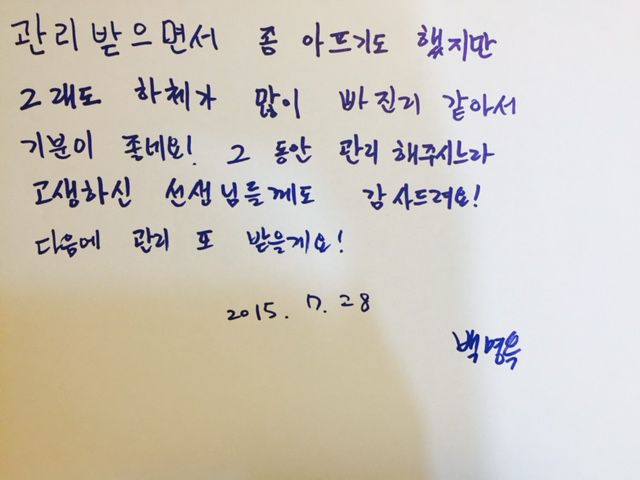 관리 받으면서 좀 아프기도 했지만
그래도 하체가 많이 빠진거 같아서
기분이 좋네요! 그 동안 관리 해주시느라
고생하신 선생님들께도 감사드려요!
다음에 관리 또 받을게요!
2015. 7. 28
백영옥